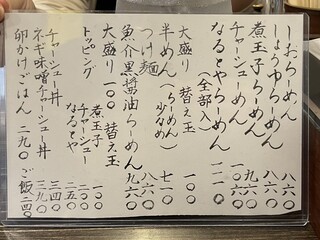 しおらーめん 八六〇
しょうゆらーめん 八六〇
煮玉子らーめん 九六〇
チャーシューめん 一〇六〇
なるとやらーめん 一一一〇
(全部入)
大盛り 替え玉 一〇〇
半めん (らーめん少なめ) 七一〇
つけ麺 八六〇
魚介黒醤油らーめん 九六〇
大盛り 一〇〇 替え玉
トッピング
煮玉子 一〇〇
チャーシュー 二〇〇
なるとや 二五〇
チャーシュー丼 三四〇
ネギ味噌チャーシュー丼 三九〇
卵かけごはん 二九〇 ご飯 二四〇